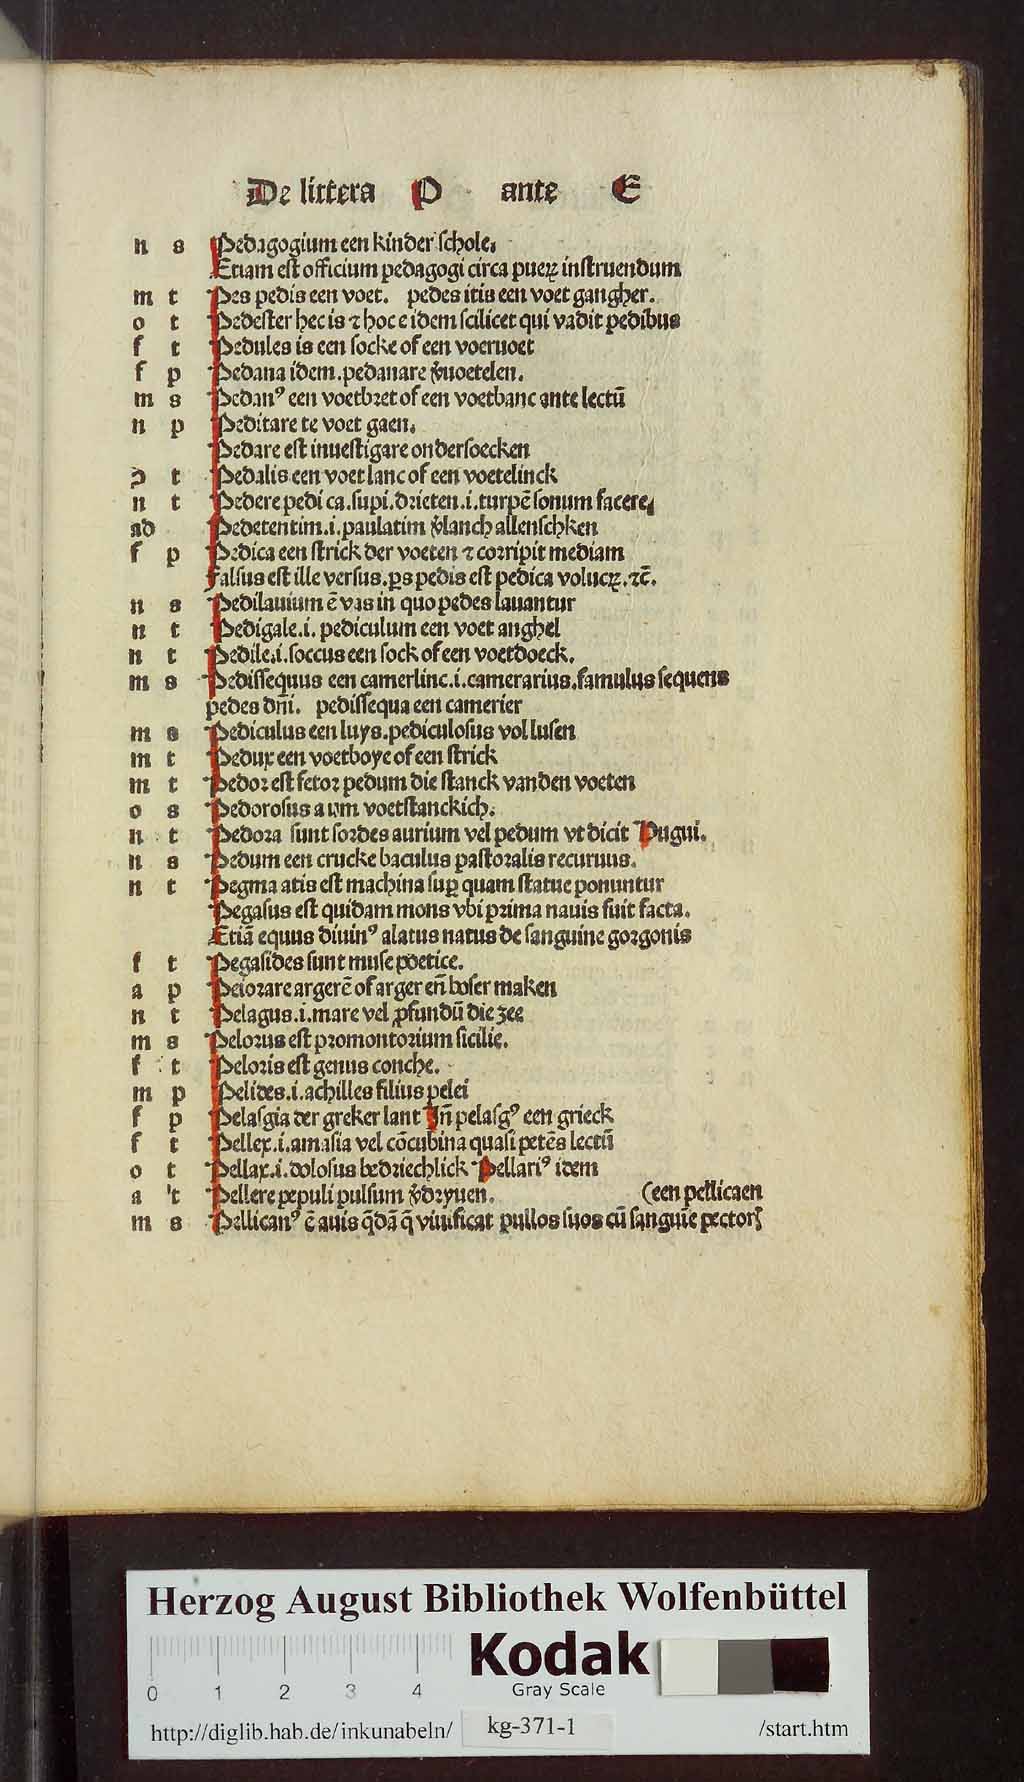 De littera P ante E
n s Pedagogium een kinder schole.
Etiam est officium pedagogi circa pueꝝ instruendum
m t Pes pedis een voet. pedes itis een voet gangher.
o t Pedester hec is ⁊ hoc e idem scilicet qui vadit pedibus
f t Pedules is een socke of een voeruoet
f p Pedana idem.pedanare v̄uoetelen.
m s Pedanꝰ een voetbret of een voetbanc ante lectū
n p Peditare te voet gaen.
Pedare est inuestigare ondersoecken
ꝯ t Pedalis een voet lanc of een voetelinck
n t Pedere pedi ca.supi.drieten.i.turpē sonum facere.
ad Pedetentim.i.paulatim v̄lanch allenschken
f p Pedica een strick der voeten ⁊ corripit mediam
Falsus est ille versus.ꝑs pedis est pedica volucꝝ.⁊c̄.
n s Pedilauium ē vas in quo pedes lauantur
n t Pedigale.i. pediculum een voet anghel
n t Pedile.i.soccus een sock of een voetdoeck.
m s Pedissequus een camerlinc.i.camerarius.famulus sequens
pedes dn̄i. pedissequa een camerier
m s Pediculus een luys.pediculosus vol lusen
m t Pedux een voetboye of een strick
m t Pedor est fetor pedum die stanck vanden voeten
o s Pedorosus a um voetstanckich.
n t Pedora sunt sordes aurium vel pedum vt dicit Pugui.
n s Pedum een crucke baculus pastoralis recuruus.
n t Pegma atis est machina suꝑ quam statue ponuntur
Pegasus est quidam mons vbi prima nauis fuit facta.
Etiā equus diuinꝰ alatus natus de sanguine gorgonis
f t Pegasides sunt muse poetice.
a p Peiorare argerē of arger en̄ boser maken
n t Pelagus.i.mare vel ꝓfundū die zee
m s Pelorus est promontorium sicilie.
f t Peloris est genus conche.
m p Pelides.i.achilles filius pelei
f p Pelasgia der greker lant In̄ pelasgꝰ een grieck
f t Pellex.i.amasia vel cōcubina quasi petēs lectū
o t Pellax.i.dolosus bedriechlick Pellariꝰ idem
a t Pellere pepuli pulsum v̄dryuen. (een pellicaen
m s Pellicanꝰ ē auis q̄dā q̄ viuificat pullos suos cū sanguīe pectorꝭ
Herzog August Bibliothek Wolfenbüttel
Kodak
Gray Scale
0 1 2 3 4
http://diglib.hab.de/inkunabeln/ kg-371-1 /start.htm